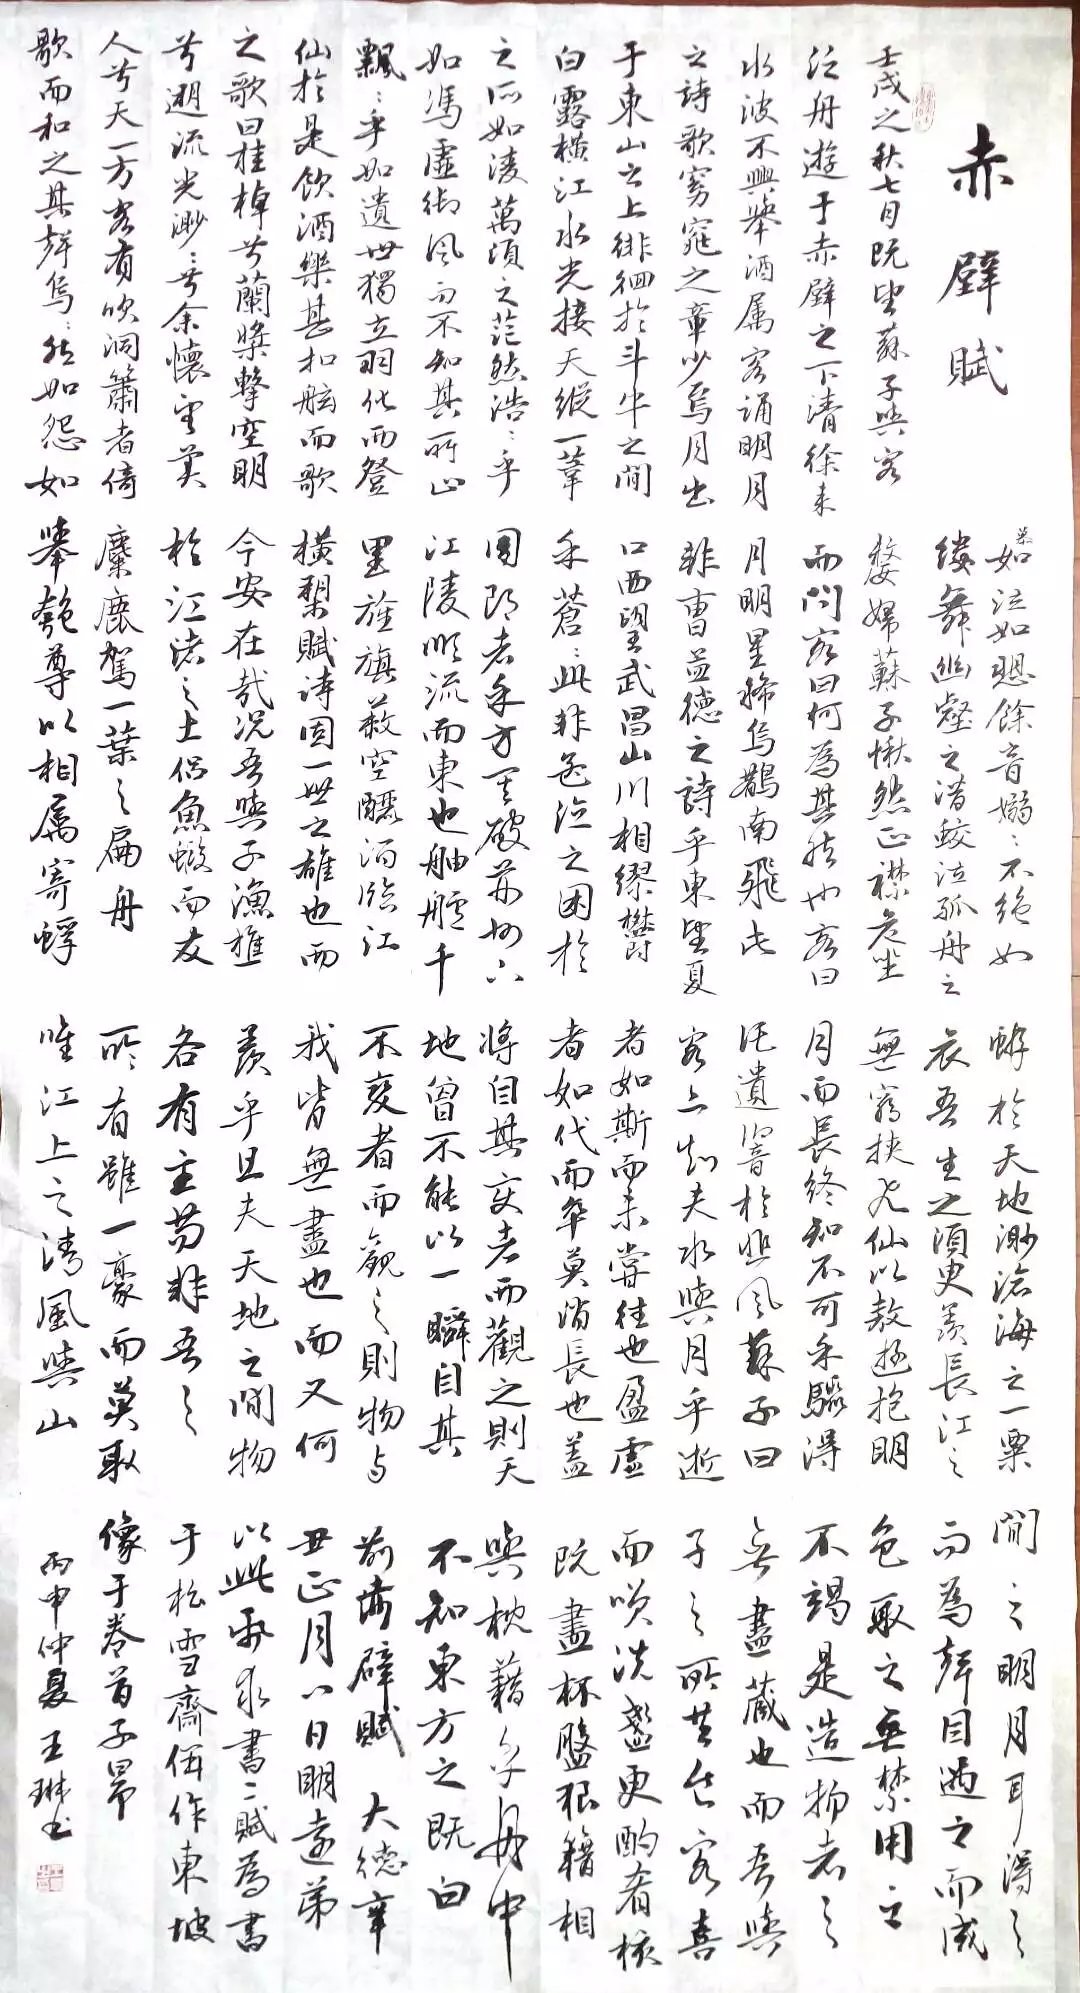 赤壁賦
壬戌之秋七月既望蘇子與客
泛舟遊于赤壁之下清徐来
水波不興舉酒属客誦明月
之詩歌窈窕之章少焉月出
于東山之上徘徊於斗牛之間
白露橫江水光接天縱一葦
之所如淩萬頃之茫然浩〻乎
如馮虛御風而不知其所止
飄〻乎如遺世獨立羽化而登
仙於是飲酒樂甚扣舷而歌
之歌曰桂棹兮蘭槳擊空明
兮溯流光渺〻兮余懷望美
人兮天一方客有吹洞簫者倚
歌而和之其聲烏〻然如怨如
慕如泣如愬餘音嫋〻不絕如
縷舞幽壑之潜蛟泣孤舟之
嫠婦蘇子愀然正襟危坐
而問客曰何為其然也客曰
月明星稀烏鵲南飛此
非曹孟德之詩乎東望夏
口西望武昌山川相繆欝
乎蒼〻此非孟德之困於
周郎者乎方其破荊州下
江陵順流而東也舳艫千
里旌旗蔽空釃酒臨江
橫槊賦詩固一世之雄也而
今安在哉況吾與子漁樵
於江渚之上侶魚蝦而友
麋鹿駕一葉之扁舟
舉匏尊以相属寄蜉
蝣於天地渺滄海之一粟
哀吾生之須臾羨長江之
無窮挾飛仙以敖遊抱明
月而長終知不可乎驟得
託遺響於悲風蘇子曰
客亦知夫水與月乎逝
者如斯而未嘗往也盈虛
者如代而卒莫消長也蓋
將自其变者而觀之則天
地曾不能以一瞬自其
不变者而觀之則物与
我皆無盡也而又何
羨乎且夫天地之間物
各有主苟非吾之
所有雖一豪而莫取
唯江上之清風與山
間之明月耳得之
而為聲目遇之而成
色取之無禁用之
不竭是造物者之
無盡藏也而吾與
子之所共食客喜
而笑洗盞更酌肴核
既盡杯盤狼籍相
與枕藉乎舟中
不知東方之既白
前赤壁賦 大德辛
丑正月八日明遠弟
以此紙求書二賦為書
于松雪齋併作東坡
像于卷首子昂
丙申仲夏王琳书